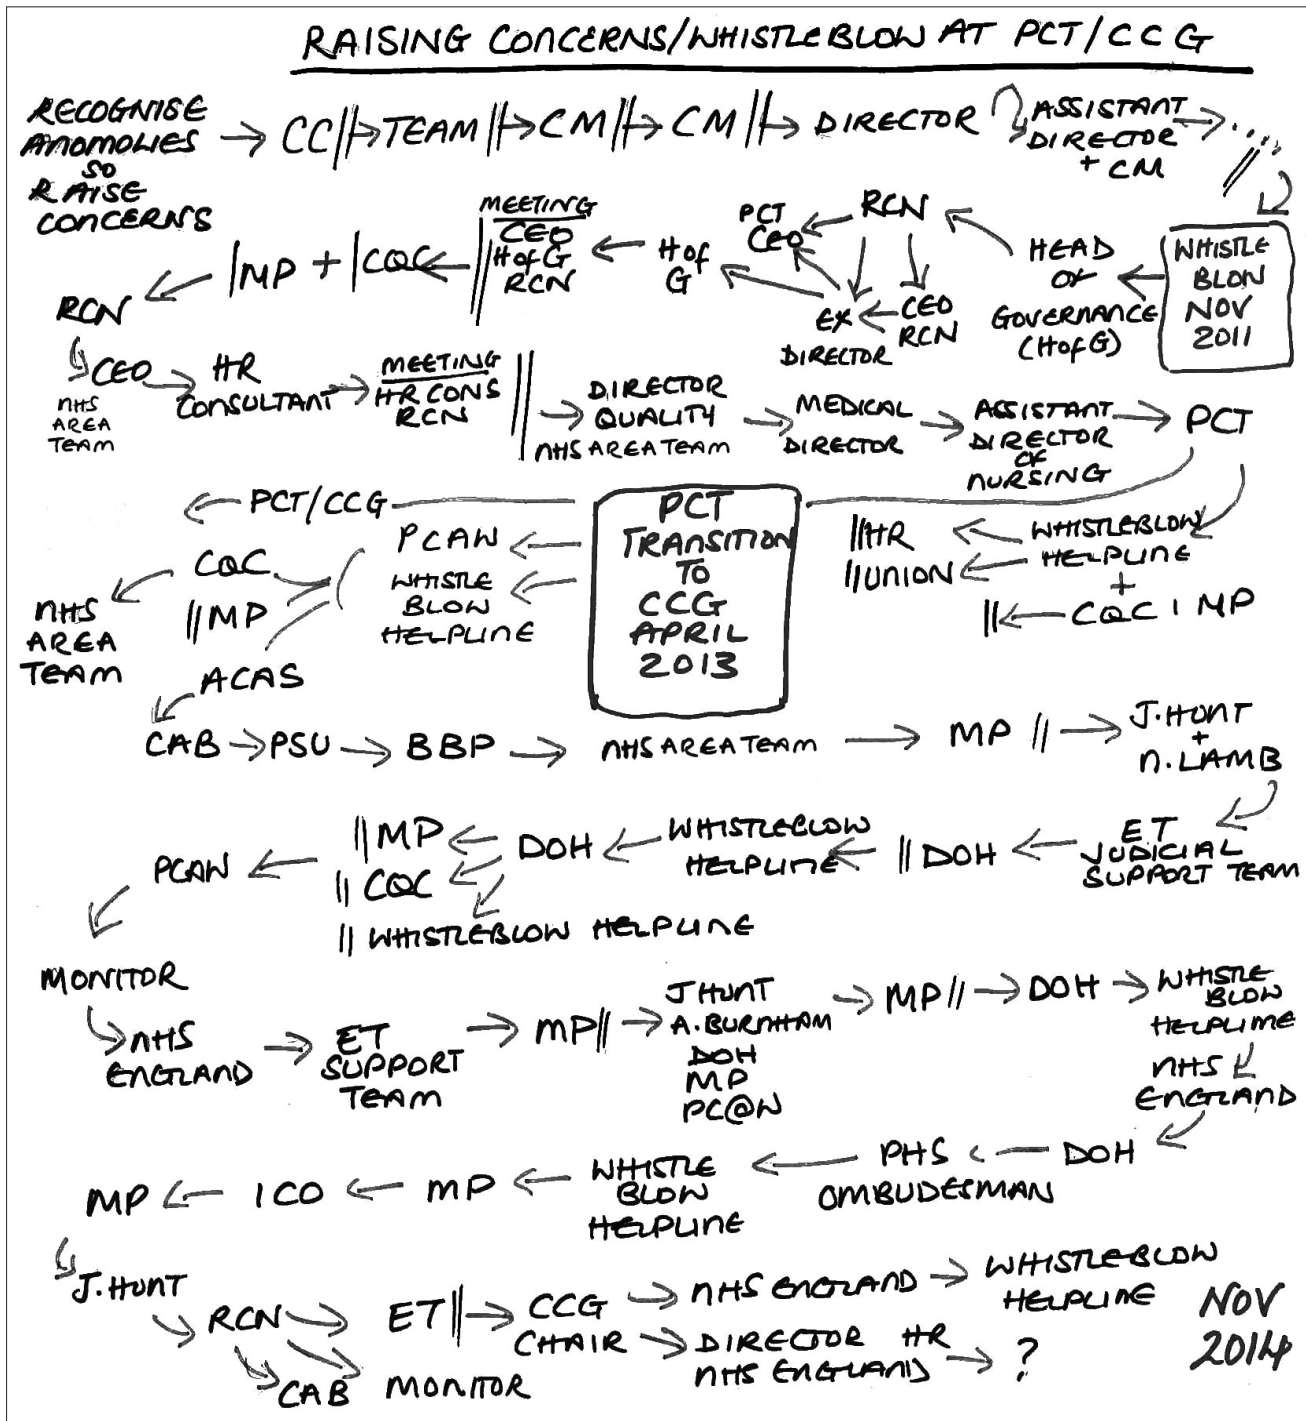 RAISING CONCERNS/WHISTLEBLOW AT PCT/CCG
RECOGNISE
ANOMOLIES
SO
RAISE
CONCERNS
→ CC ||→ TEAM ||→ CM ||→ CM ||→ DIRECTOR
ASSISTANT
DIRECTOR
+ CM
→ .....
//
WHISTLE
BLON
NOV
2011
HEAD
OF
GOVERNANCE
(HofG)
RCN
PCT
CEO
CEO
RCN
EX
DIRECTOR
H of
G
MEETING
CEO
HofG
RCN
|MP + |CQC
RCN
CEO
NHS
AREA
TEAM
HR
CONSULTANT
MEETING
HR CONS
RCN
||
DIRECTOR
QUALITY
NHS AREA TEAM
MEDICAL
DIRECTOR
ASSISTANT
DIRECTOR
OF
NURSING
PCT
← PCT/CCG
PCT
TRANSITION
TO
CCG
APRIL
2013
WHISTLEBLOW
HELPLINE
+
CQC | MP
||HR
||UNION
||
PCAW
WHISTLE
BLOW
HELPLINE
CQC
||MP
ACAS
NHS
AREA
TEAM
CAB → PSU → BBP → NHS AREA TEAM → MP || →
J.HUNT
+
N.LAMB
ET
JUDICIAL
SUPPORT TEAM
|| DOH
WHISTLEBLOW
HELPLINE
DOH
|| MP
|| CQC
|| WHISTLEBLOW HELPLINE
PCAW
MONITOR
NHS
ENGLAND
ET
SUPPORT
TEAM
MP||
J HUNT
A.BURNHAM
DOH
MP
PC@W
→ MP|| → DOH →
WHISTLE
BLOW
HELPLINE
NHS
ENGLAND
DOH
PHS
OMBUDESMAN
WHISTLE
BLOW
HELPLINE
MP ← ICO ← MP
J.HUNT
RCN
CAB
MONITOR
ET||→
CCG
CHAIR
NHS ENGLAND
WHISTLEBLOW
HELPLINE
DIRECTOR HR
NHS ENGLAND
→ ?
NOV
2014